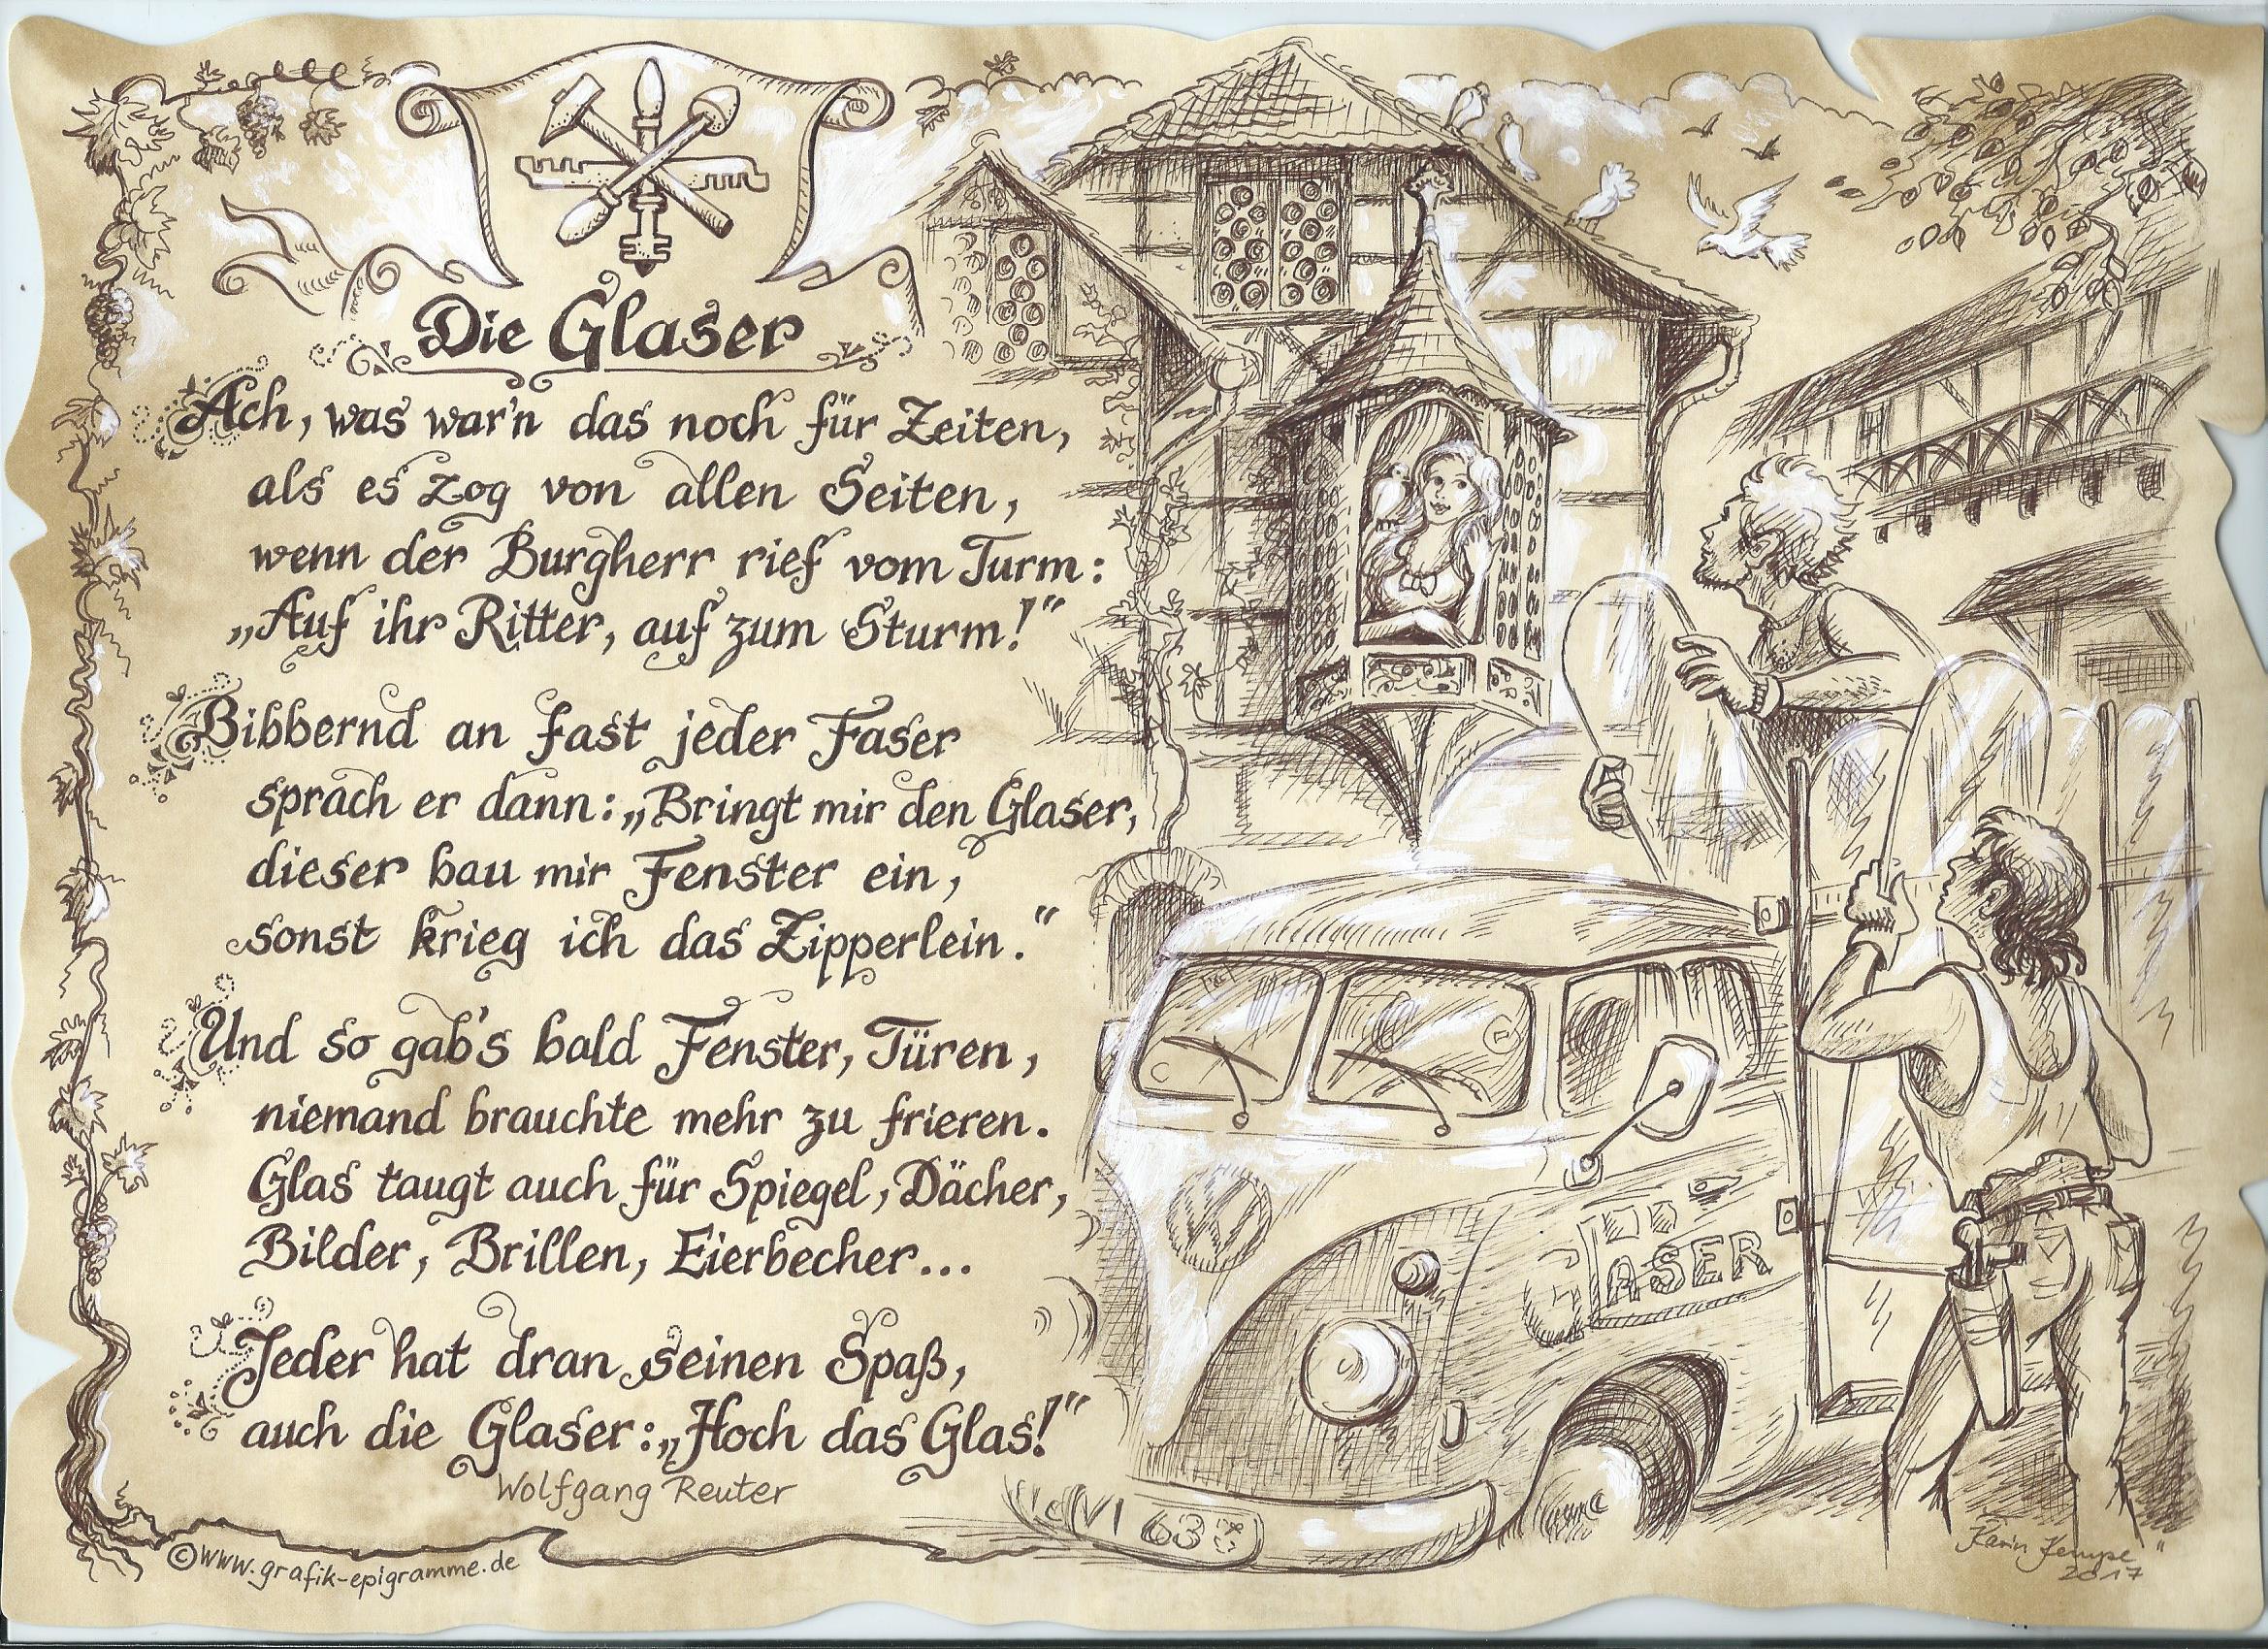 Die Glaser
Ach, was war'n das noch für Zeiten,
als es zog von allen Seiten,
wenn der Burgherr rief vom Turm:
„Auf ihr Ritter, auf zum Sturm!“
Bibbernd an fast jeder Faser
sprach er dann: „Bringt mir den Glaser,
dieser bau mir Fenster ein,
sonst krieg ich das Zipperlein.“
Und so gab's bald Fenster, Türen,
niemand brauchte mehr zu frieren.
Glas taugt auch für Spiegel, Dächer,
Bilder, Brillen, Eierbecher...
Jeder hat dran seinen Spaß,
auch die Glaser: „Hoch das Glas!“
Wolfgang Reuter
©www.grafik-epigramme.de
GLASER
VW
637
Karin
2017